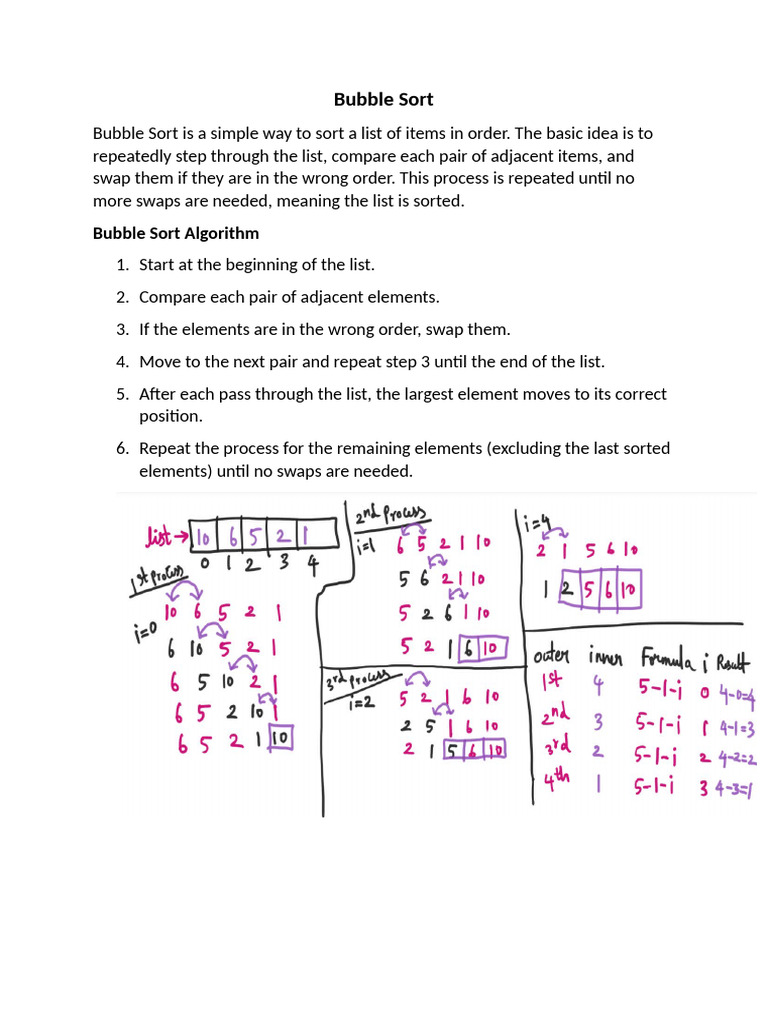 Bubble Sort
Bubble Sort is a simple way to sort a list of items in order. The basic idea is to
repeatedly step through the list, compare each pair of adjacent items, and
swap them if they are in the wrong order. This process is repeated until no
more swaps are needed, meaning the list is sorted.
Bubble Sort Algorithm
1. Start at the beginning of the list.
2. Compare each pair of adjacent elements.
3. If the elements are in the wrong order, swap them.
4. Move to the next pair and repeat step 3 until the end of the list.
5. After each pass through the list, the largest element moves to its correct
position.
6. Repeat the process for the remaining elements (excluding the last sorted
elements) until no swaps are needed.
list → 10 6 5 2 1
0 1 2 3 4
1st process
i=0
10 6 5 2 1
6 10 5 2 1
6 5 10 2 1
6 5 2 10 1
6 5 2 1 10
2nd process
i=1
6 5 2 1 10
5 6 2 1 10
5 2 6 1 10
5 2 1 6 10
3rd process
i=2
5 2 1 6 10
2 5 1 6 10
2 1 5 6 10
i=4
2 1 5 6 10
1 2 5 6 10
outer inner Formula i Result
1st 4 5-1-i 0 4-0=4
2nd 3 5-1-i 1 4-1=3
3rd 2 5-1-i 2 4-2=2
4th 1 5-1-i 3 4-3=1